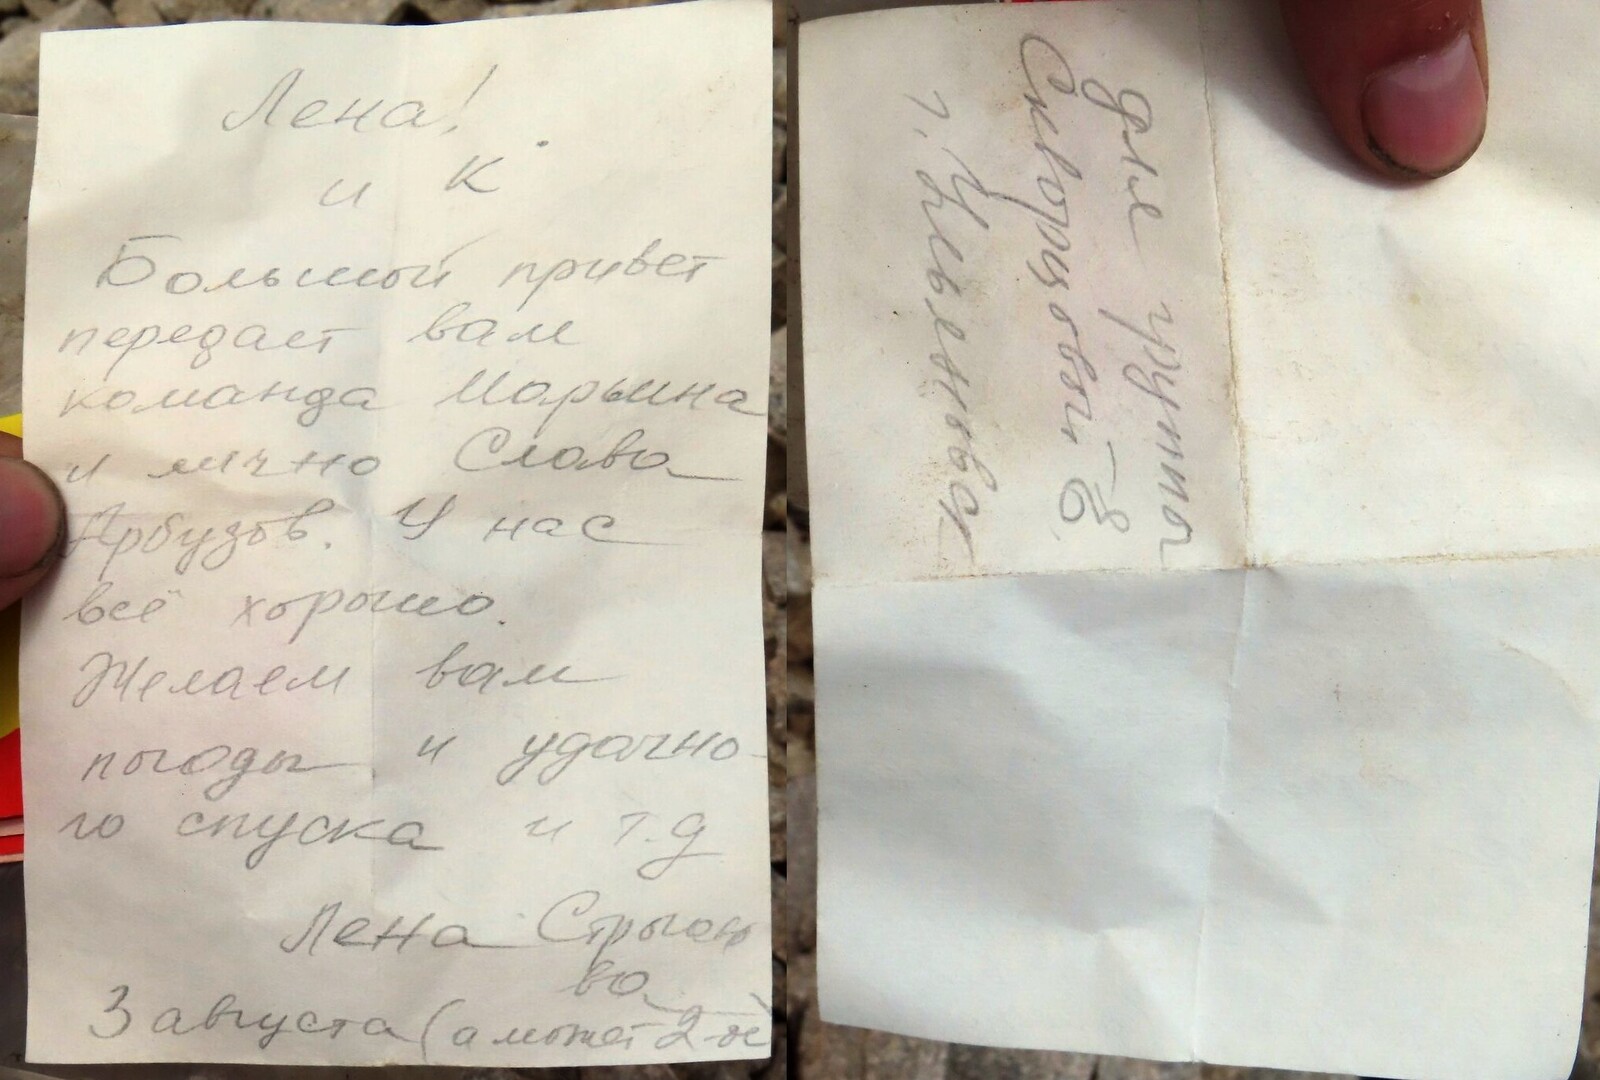 Лена!
и К°
Большой привет
передает вам
команда Марьина
и лично Слава
Арбузов. У нас
всё хорошо.
Желаем вам
погоды и удачно-
го спуска и т.д
Лена
ва
3 августа (а может 2-ое)
для группы
Скворцовой Е
г. Ульяновск